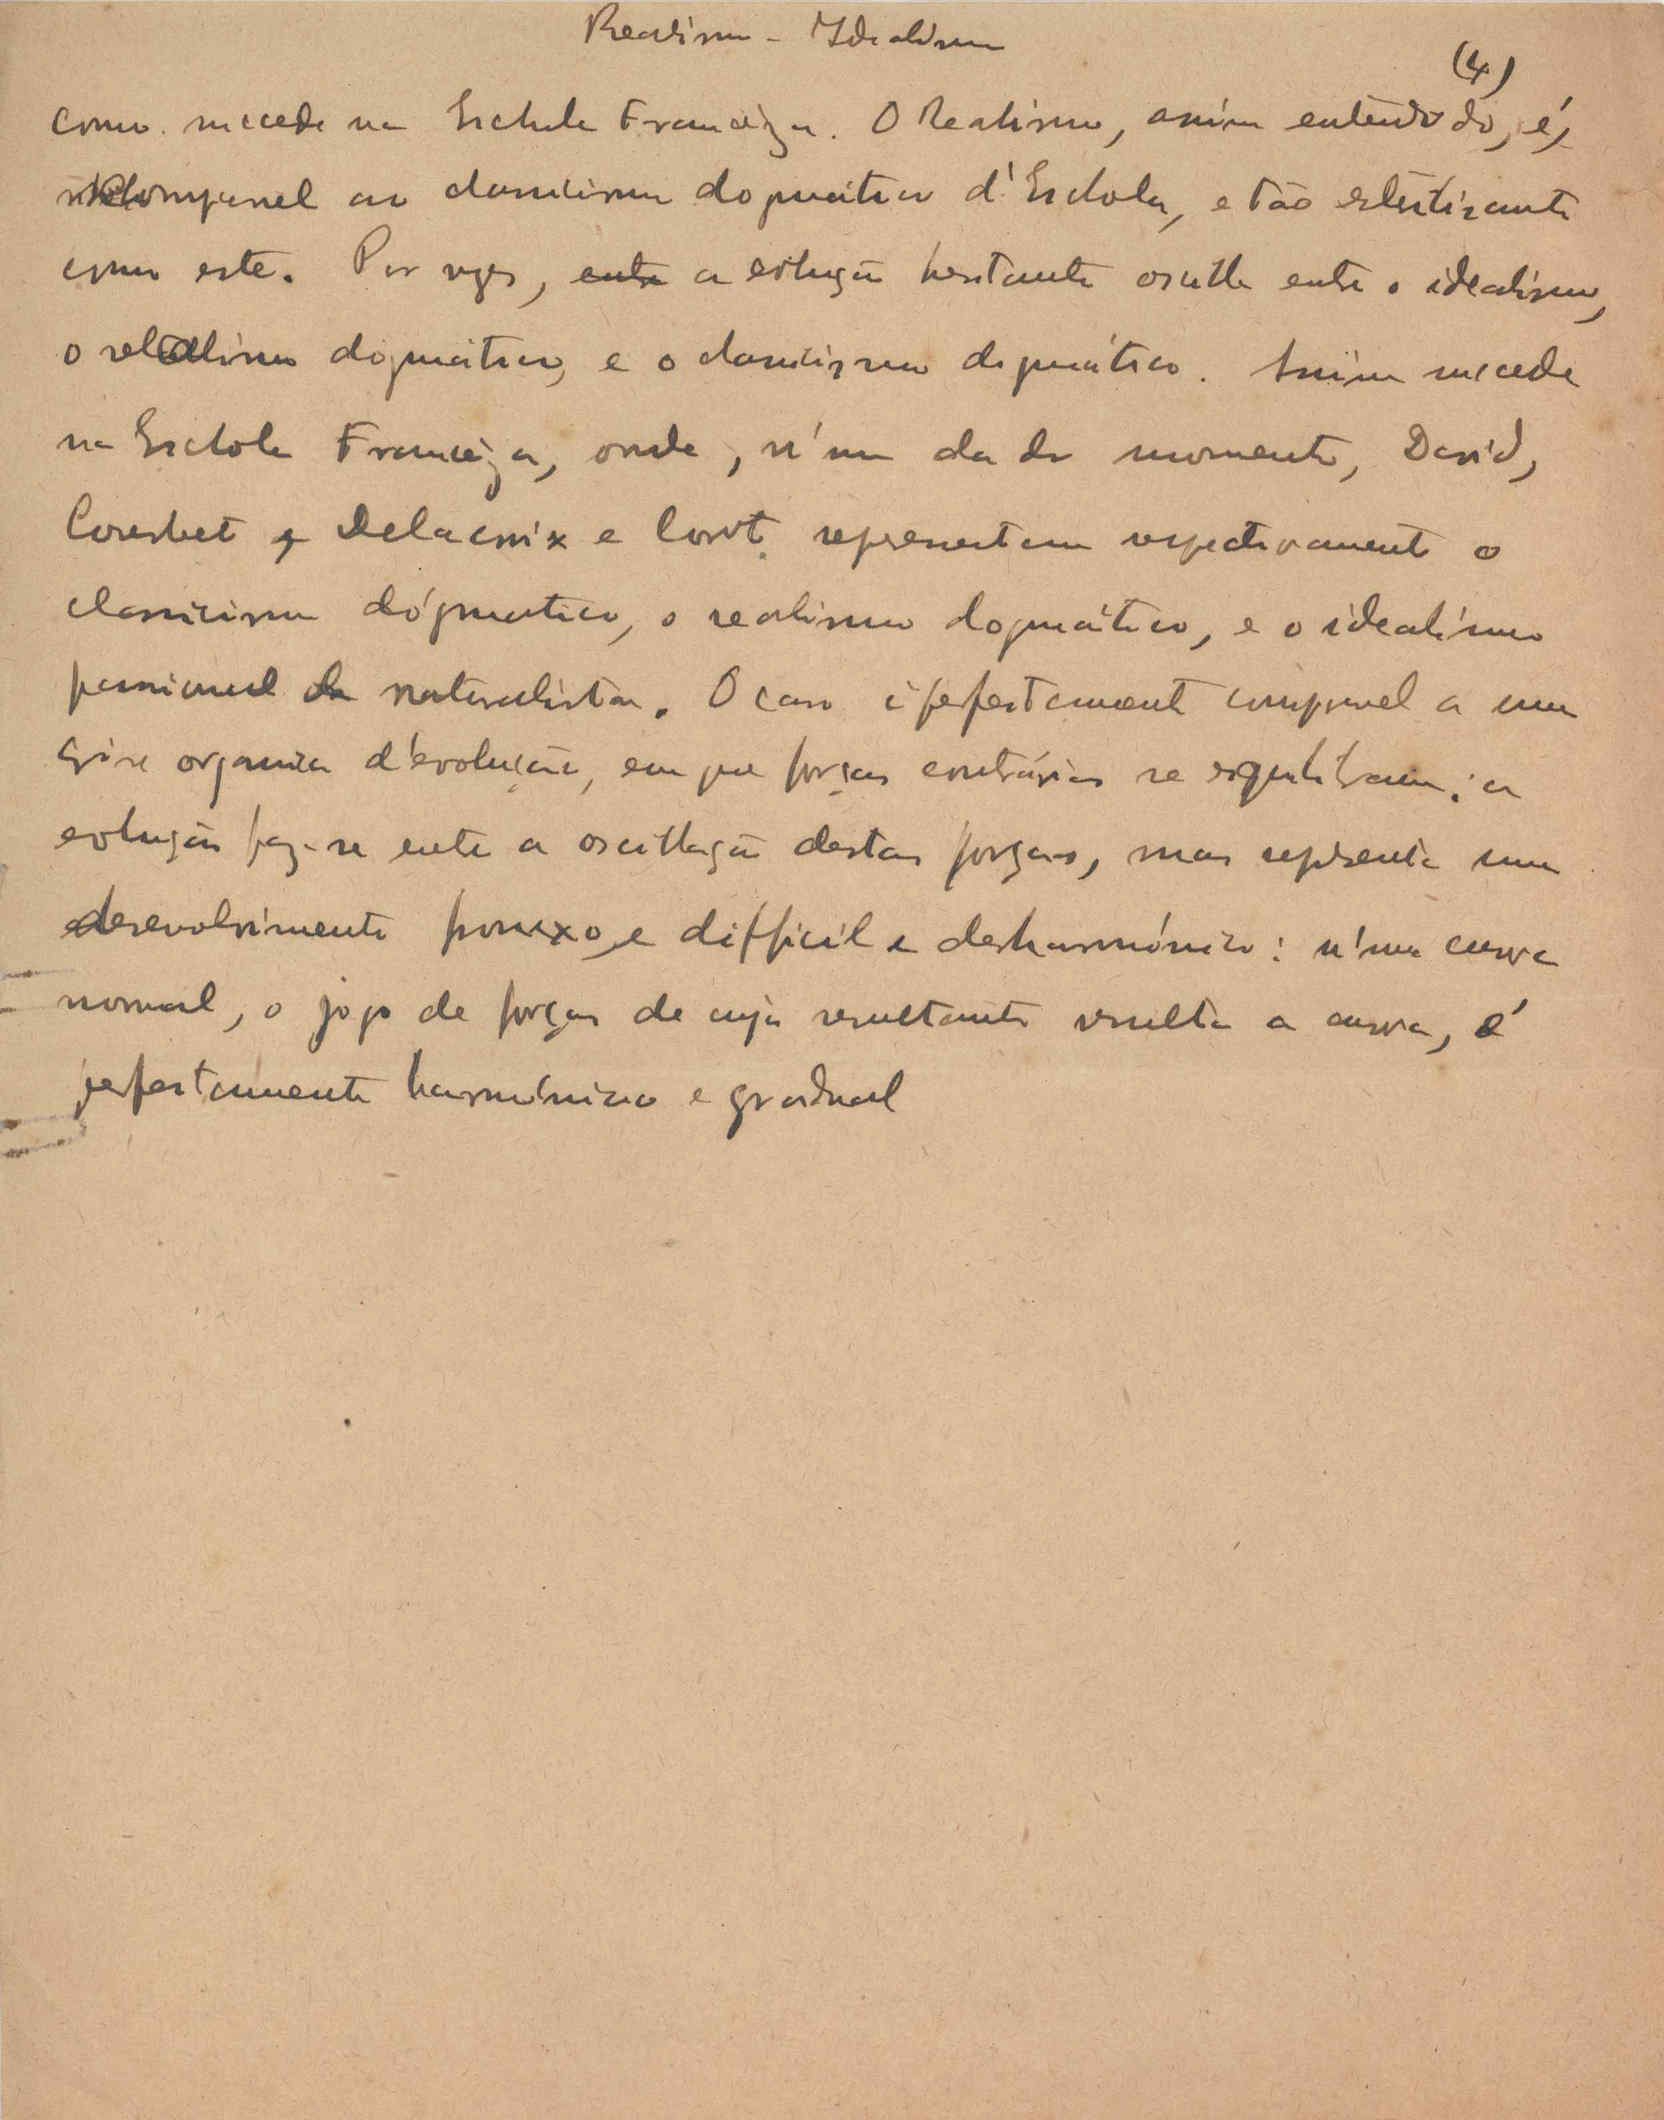 Realismo - Idealismo
(4)
como succede na Eschola Francêza. O Realismo, assim entendido, é,
comparavel ao classicismo dogmático d'Eschola, e tão esterilizante
como este. Por vezes, a evolução hesitante oscilla entre o idealismo,
o realismo dogmático, e o classicismo dogmático. Assim succede
na Eschola Francêza, onde, n'um dado momento, David,
Courbet e Delacroix e Corot representam respectivamente o
classicismo dógmatico, o realismo dogmático, e o idealismo
passional naturalista. O caso é perfeitamente comparavel a uma
crise organica d'evolução, em que forças contrárias se equilibram: a
evolução faz-se entre a oscillação destas forças, mas representa um
desenvolvimento e difficil e desharmónico: n'uma curva
normal, o jogo de forças de cuja resultante resulta a curva, é
perfeitamente harmónico e gradual